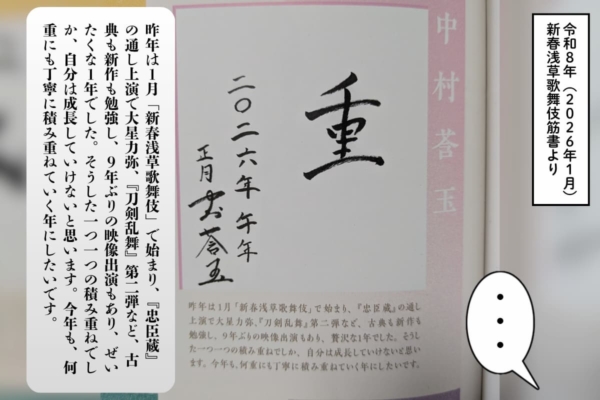 令和8年（2026年1月）
新春浅草歌舞伎筋書より
・・・
中村莟玉
重
二〇二六年 午年
正月 莟玉
昨年は1月「新春浅草歌舞伎」で始まり、『忠臣蔵』の通し
上演で大星力弥、『刀剣乱舞』第二弾など、古典も新作も
勉強し、9年ぶりの映像出演もあり、贅沢な1年でした。そうし
た一つ一つの積み重ねでしか、自分は成長していけないと思い
ます。今年も、何重にも丁寧に積み重ねていく年にしたいです。
昨年は1月「新春浅草歌舞伎」で始まり、『忠臣蔵』
の通し上演で大星力弥、『刀剣乱舞』第二弾など、古
典も新作も勉強し、9年ぶりの映像出演もあり、ぜい
たくな1年でした。そうした一つ一つの積み重ねでし
か、自分は成長していけないと思います。今年も、何
重にも丁寧に積み重ねていく年にしたいです。